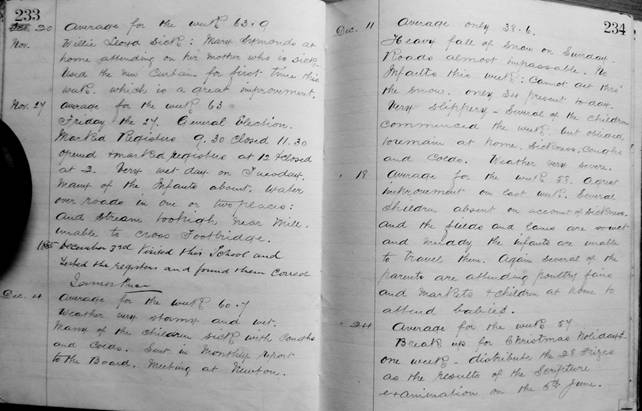 233
20 Average for the week 63.0
Nov. Willie Lloyd Sick: Mary Symonds at
home attending on her mother who is sick.
Used the new Curtain for first time this
week. which is a great improvement.
Nov. 27 average for the week 63
Friday the 27. General Election.
Marked Registers 9.30 Closed 11.30
opened & marked registers at 12 & closed
at 2. Very wet day on Tuesday.
Many of the Infants absent. Water
over roads in one or two places:
and stream too high near Mill.
unable to cross Footbridge.
1885 December 3rd Visited this School and
tested the registers and found them correct
James
Dec. 4 average for the week 60.7
Weather very stormy and wet.
Many of the children sick with Coughs
and Colds. Sent in Monthly Report
to the Board. Meeting at Newton.
234
Dec. 11 Average only 38.6.
Heavy fall of Snow on Sunday.
Roads almost impassable. No
Infants this week: Cannot get thro'
the Snow. only 30 present to-day.
Very Slippery - Several of the Children
commenced the week but obliged
to remain at home. Sickness, Coughs
and Colds. Weather very severe.
" 18 Average for the week 53. A great
improvement on last week. Several
Children absent on account of Sickness.
and the fields and lanes are so wet
and muddy the infants are unable
to travel them. Again several of the
parents are attending poultry fairs
and markets & children at home to
attend babies.
" 24 Average for the week 57
Break up for Christmas Holidays
one week. distribute the 28 Prizes
as the results of the Scripture
examination on the 5th June.